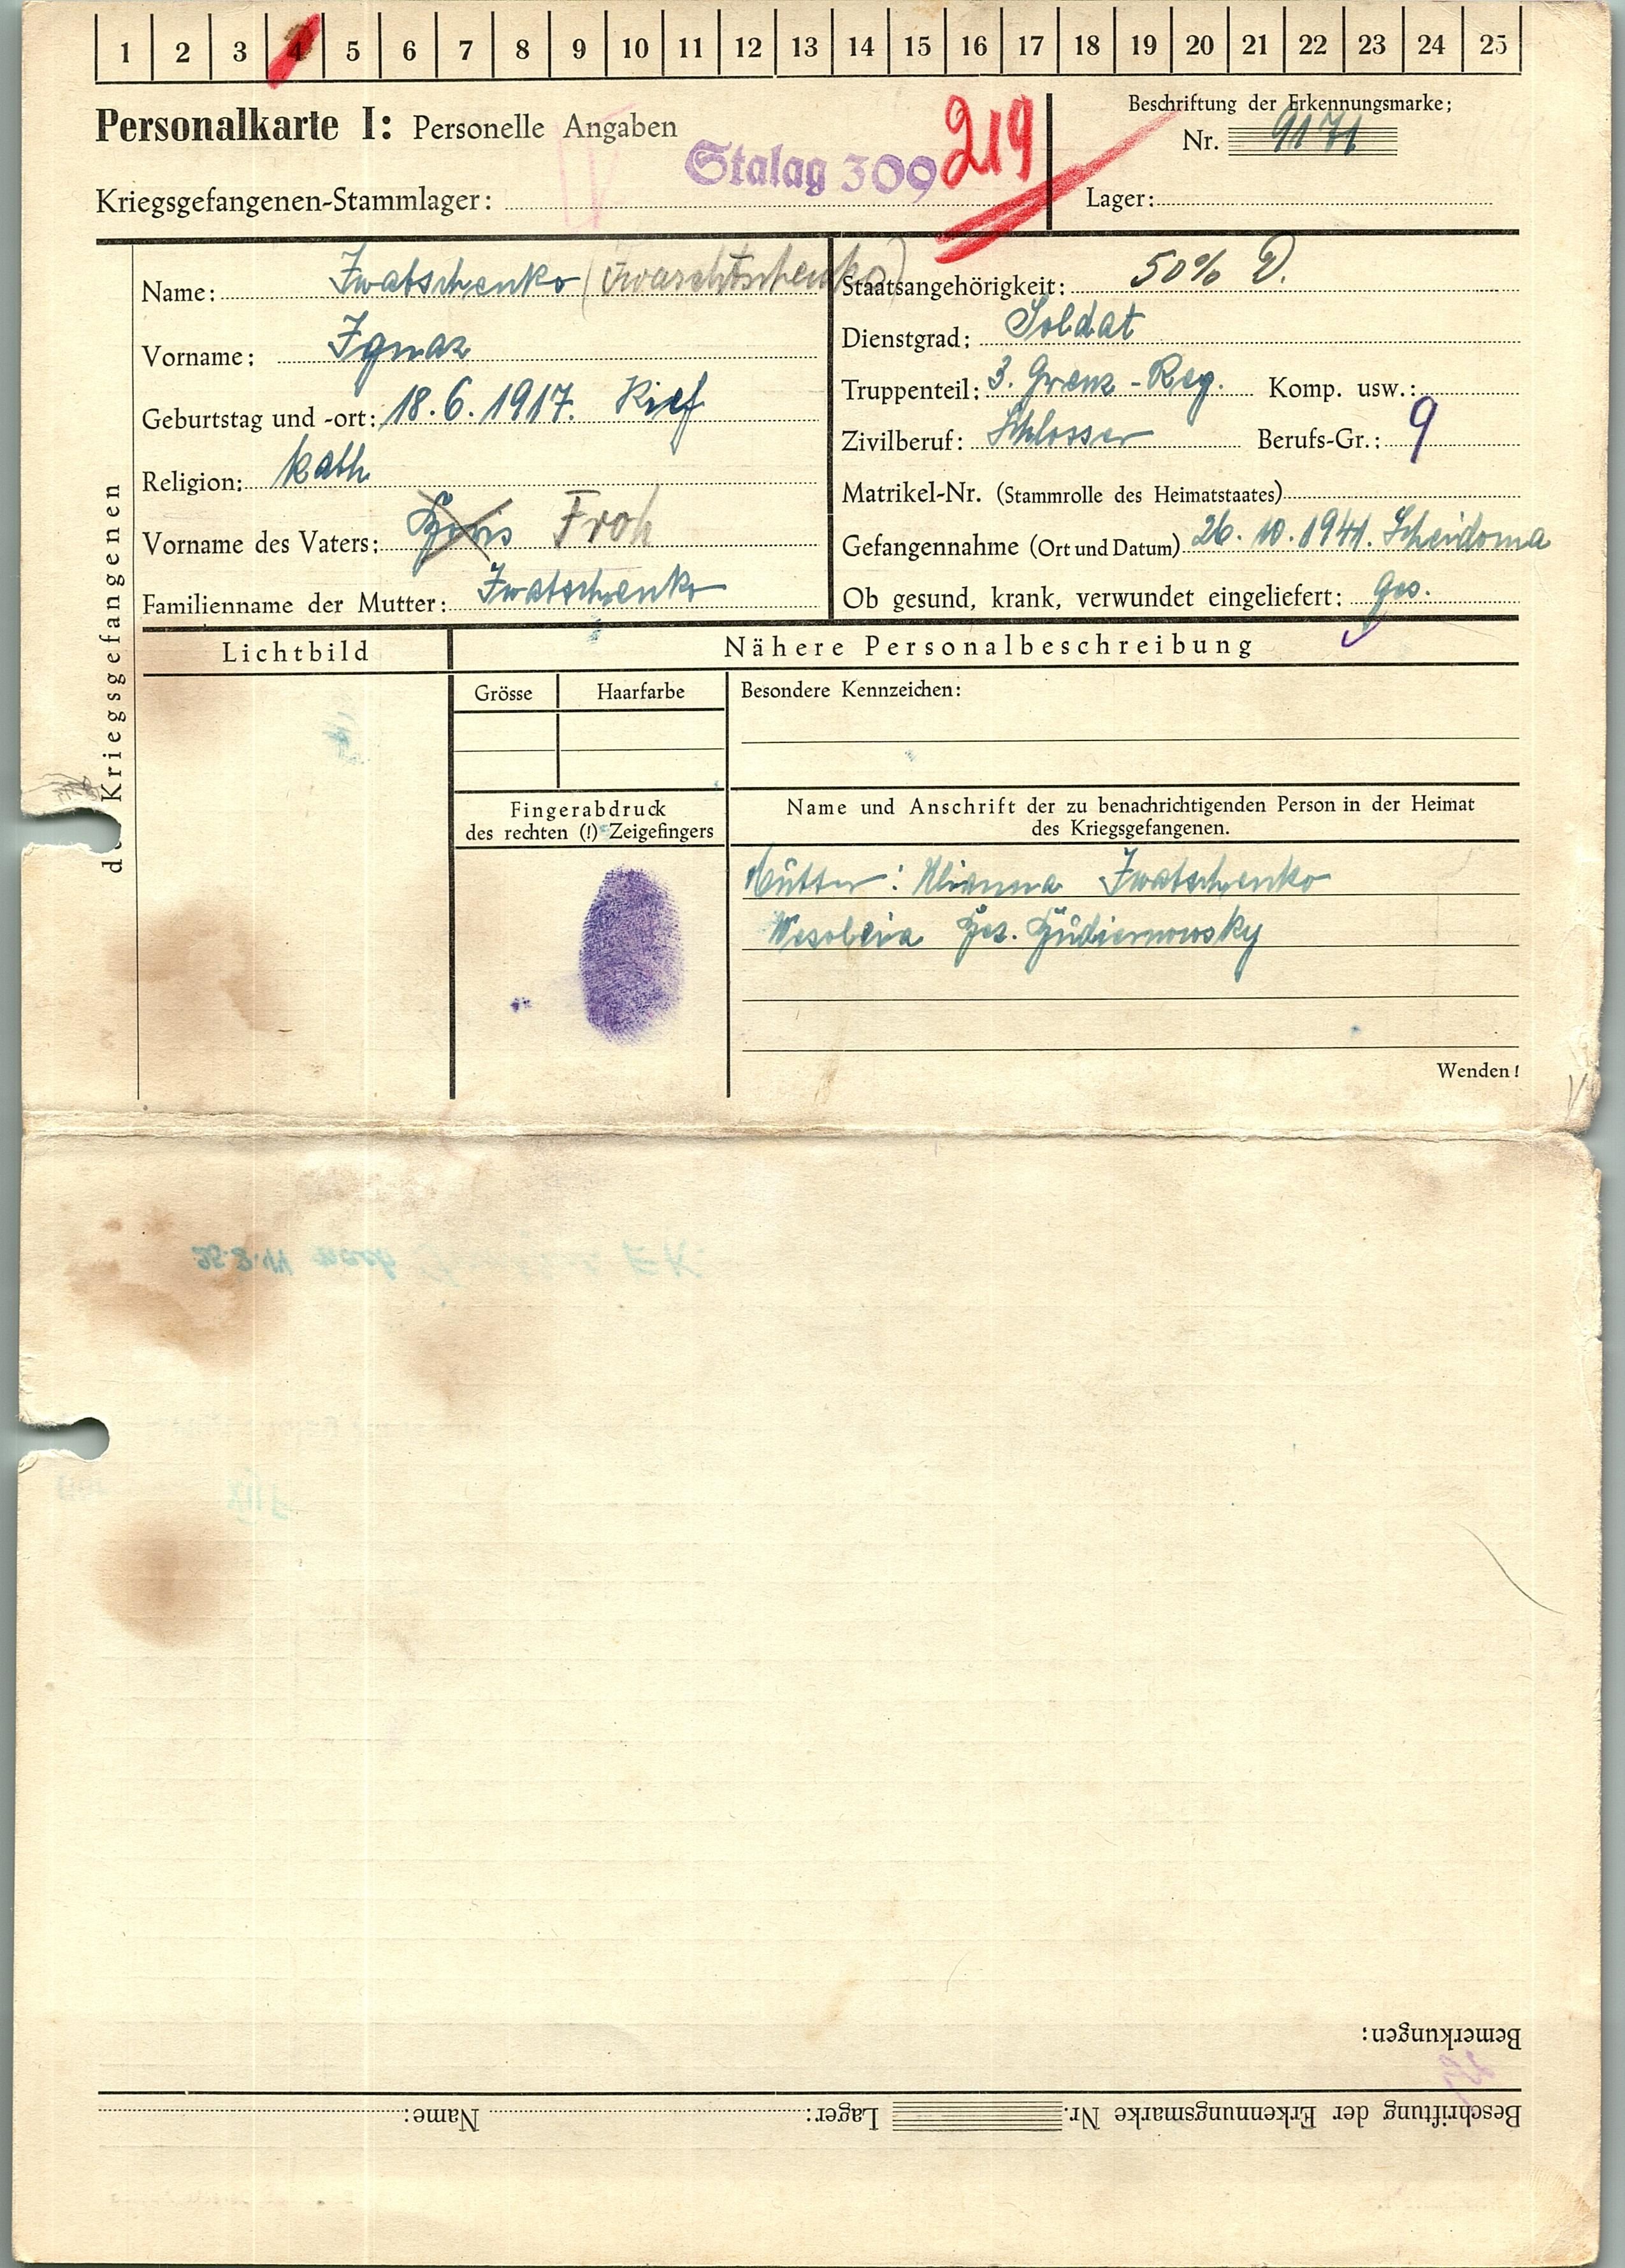 1 2 3 4 5 6 7 8 9 10 11 12 13 14 15 16 17 18 19 20 21 22 23 24 25
Personalkarte I: Personelle Angaben
Stalag 309 219
Kriegsgefangenen-Stammlager:
Beschriftung der Erkennungsmarke;
Nr. 9171
Lager:
des Kriegsgefangenen
Name: Iwatschenko (Iwaschtschenko)
Vorname: Ignaz
Geburtstag und -ort: 18.6.1917. Kief
Religion: kath
Vorname des Vaters: Froh
Familienname der Mutter: Iwatschenko
Staatsangehörigkeit: 50% D.
Dienstgrad: Soldat
Truppenteil: 3. Grenz-Reg. Komp. usw.:
Zivilberuf: Schlosser Berufs-Gr.: 9
Matrikel-Nr. (Stammrolle des Heimatstaates)
Gefangennahme (Ort und Datum) 26.10.1941. Scheidoma
Ob gesund, krank, verwundet eingeliefert: ges.
Lichtbild
Nähere Personalbeschreibung
Grösse Haarfarbe
Besondere Kennzeichen:
Fingerabdruck
des rechten (!) Zeigefingers
Name und Anschrift der zu benachrichtigenden Person in der Heimat
des Kriegsgefangenen.
Mutter: Iwatschenko
Wenden!
Bemerkungen:
Beschriftung der Erkennungsmarke Nr. Lager: Name: